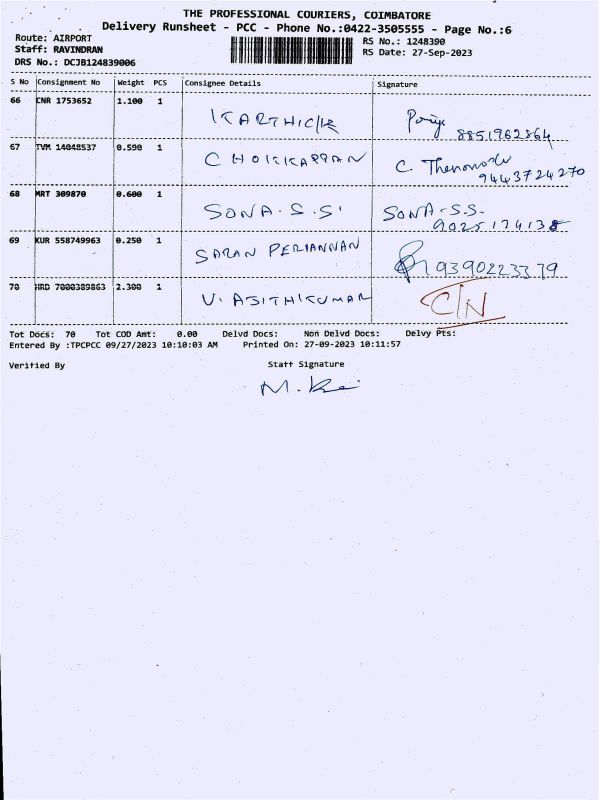 THE PROFESSIONAL COURIERS, COIMBATORE
Delivery Runsheet - PCC - Phone No.:0422-3505555 - Page No.:6
Route: AIRPORT
RS No.: 1248390
Staff: RAVINDRAN
RS Date: 27-Sep-2023
DRS No.: DCJB124839006
S No Consignment No Weight PCS Consignee Details Signature
66 CNR 1753652 1.100 1
KARTHICK
8851962864
67 TVM 14048537 0.590 1
CHOKKAPPAN C.
9443724270
68 MRT 309870 0.600 1
SONA.S.S. SONA.S.S.
9025174138
69 KUR 558749963 0.250 1
SARAN PERIANNAN 9390223379
70 HRD 7000389863 2.300 1
V. AJITHKUMAR C/N
Tot Docs: 70 Tot COD Amt: 0.00 Delvd Docs: Non Delvd Docs: Delvy Pts:
Entered By :TPCPCC 09/27/2023 10:10:03 AM Printed On: 27-09-2023 10:11:57
Verified By Staff Signature